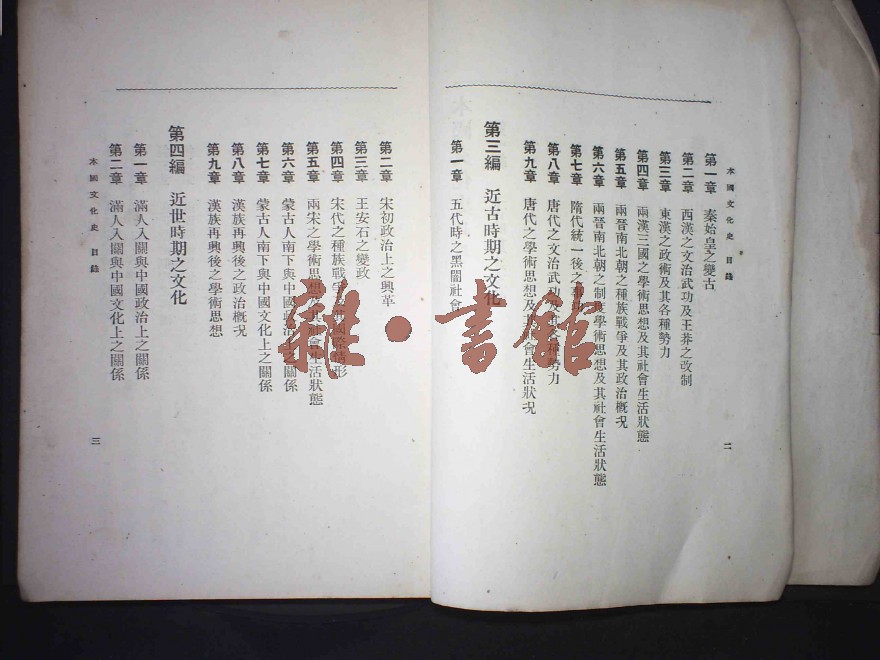 本國文化史 目錄
第一章 秦始皇之變古
第二章 西漢之文治武功及王莽之改制
第三章 東漢之政術及其各種勢力
第四章 兩漢三國之學術思想及其社會生活狀態
第五章 兩晉南北朝之種族戰爭及其政治概况
第六章 兩晉南北朝之制度學術思想及其社會生活狀態
第七章 隋代統一後之
第八章 唐代之文治武功及其各種勢力
第九章 唐代之學術思想及其社會生活狀况
第三編 近古時期之文化
第一章 五代時之黑闇社會
二
第二章 宋初政治上之興革
第三章 王安石之變政
第四章 宋代之種族戰爭及其國際情形
第五章 兩宋之學術思想及其社會生活狀態
第六章 蒙古人南下與中國政治上之關係
第七章 蒙古人南下與中國文化上之關係
第八章 漢族再興後之政治概况
第九章 漢族再興後之學術思想
第四編 近世時期之文化
第一章 滿人入關與中國政治上之關係
第二章 滿人入關與中國文化上之關係
本國文化史 目錄
三
雜·書館